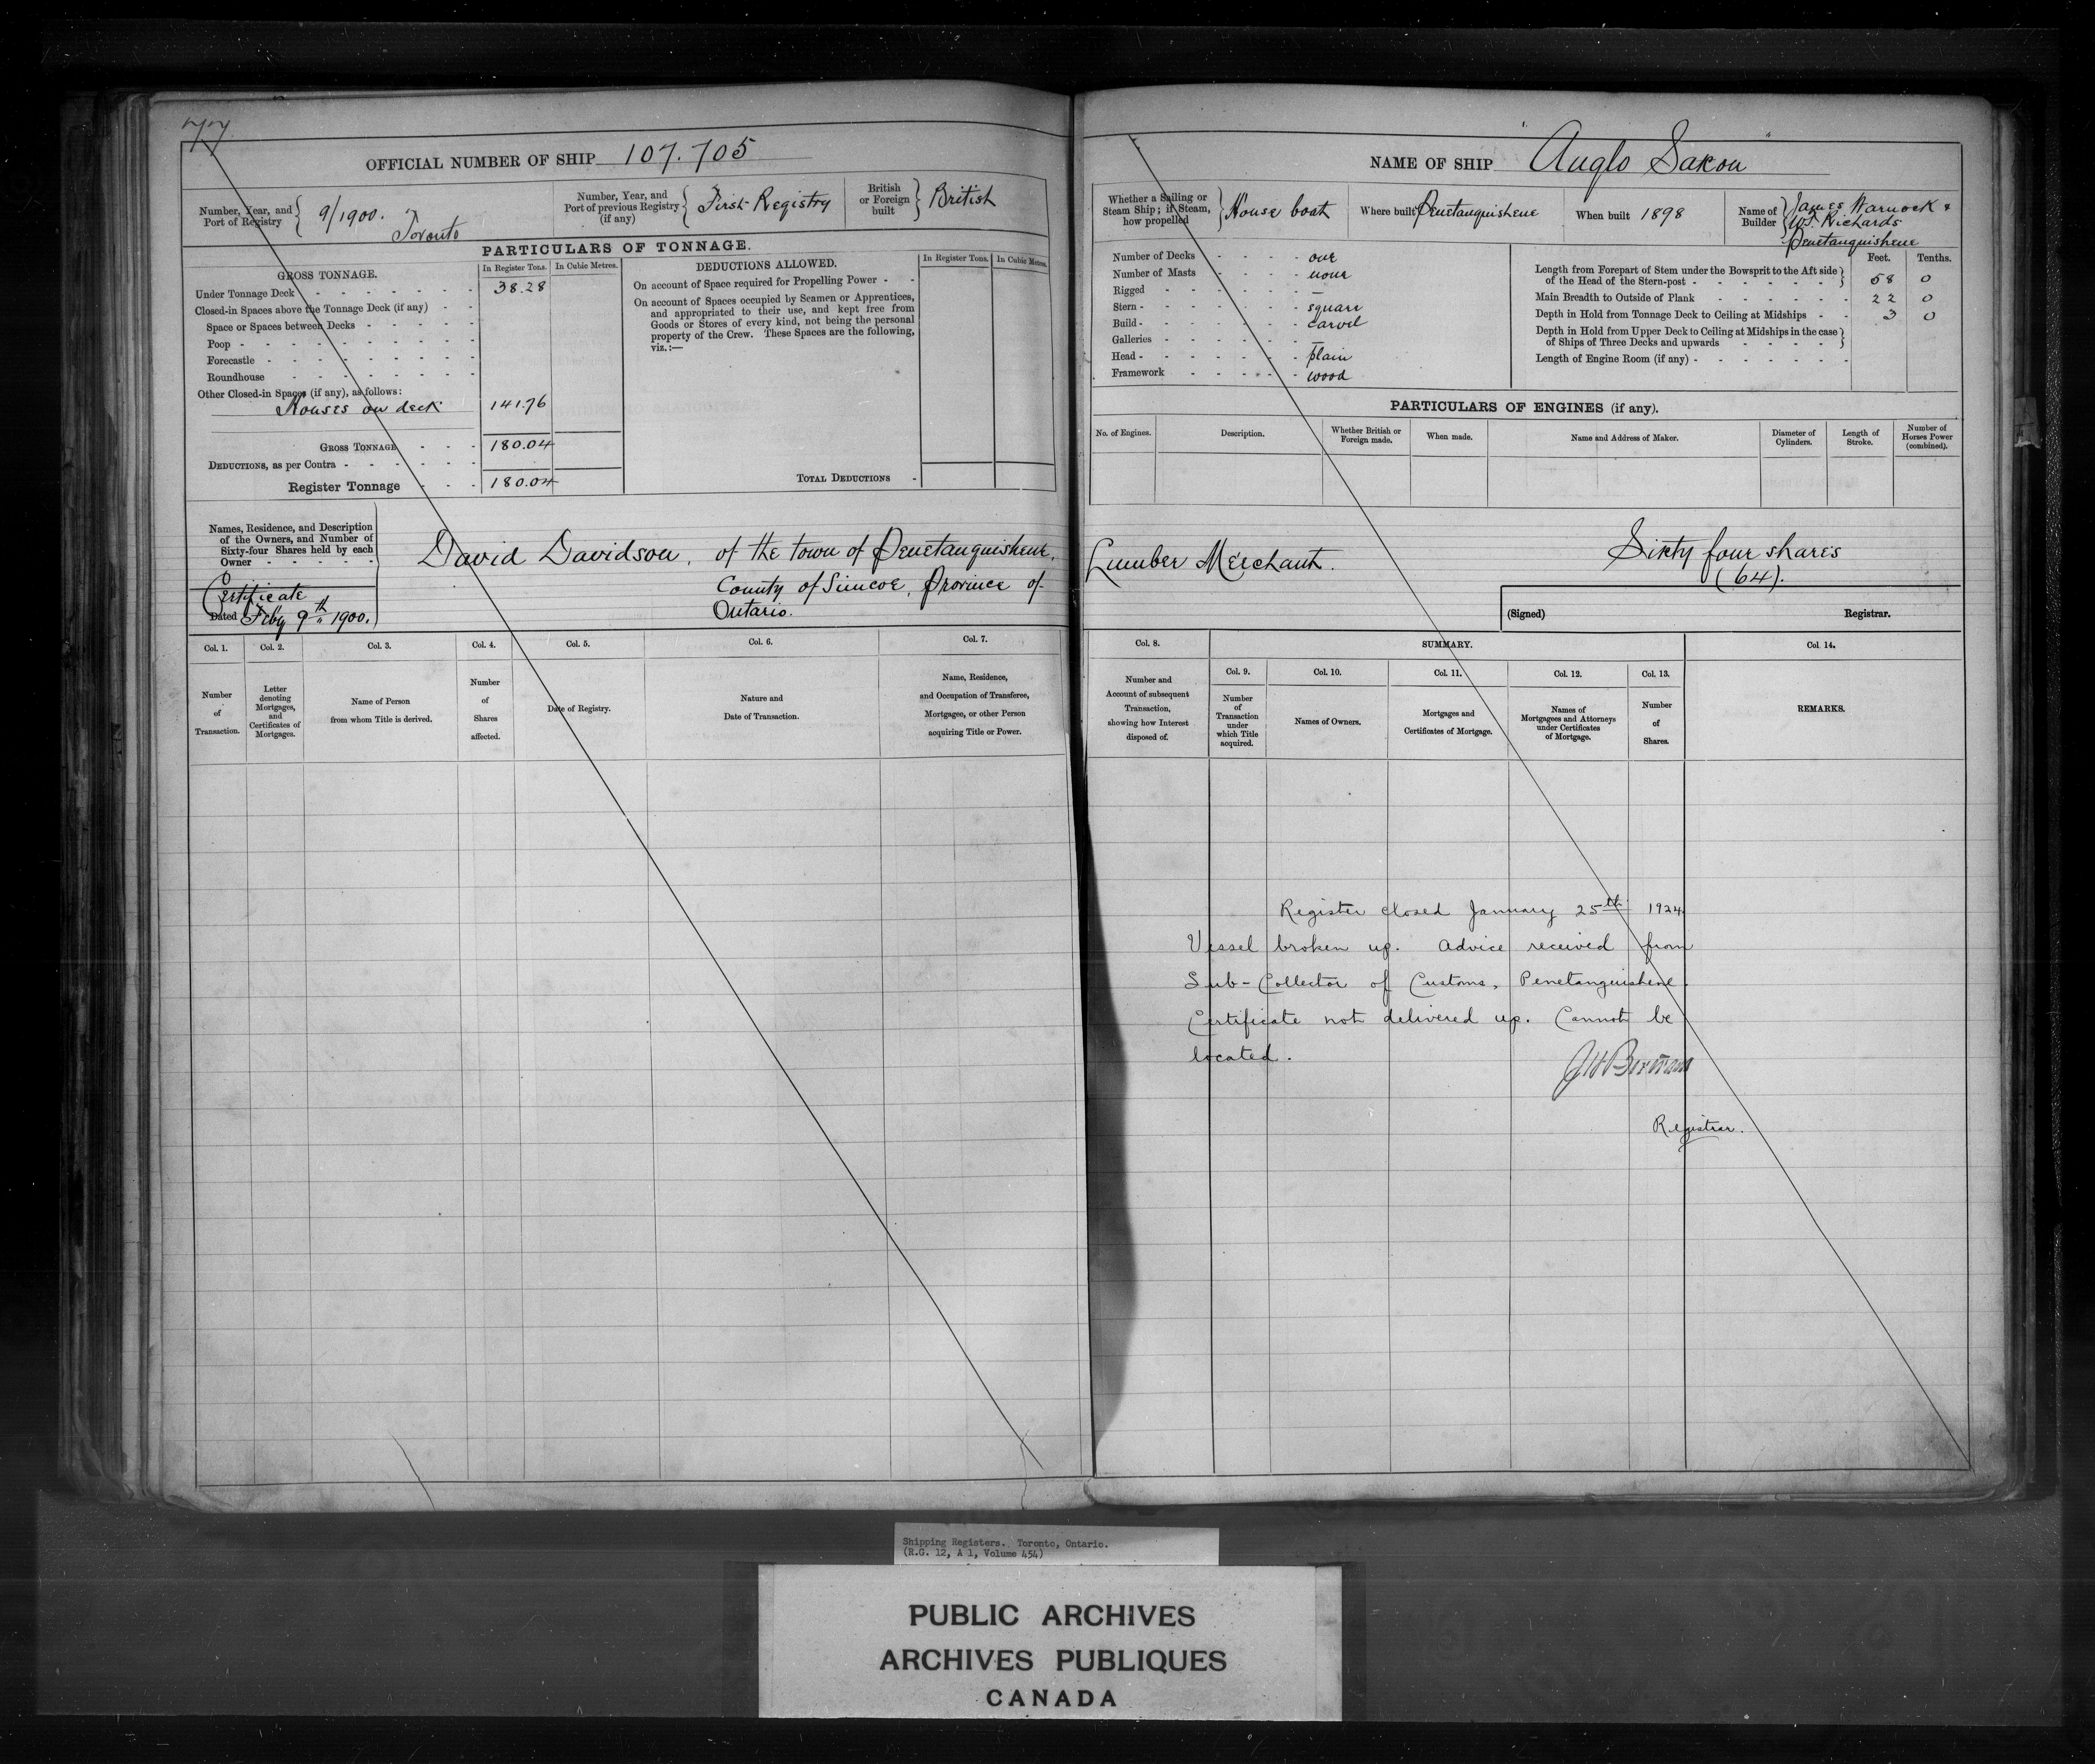 77
OFFICIAL NUMBER OF SHIP 107.705
Number, Year, and Port of Registry 9/1900. Toronto
Number, Year, and Port of previous Registry (if any) First Registry
British or Foreign built British
PARTICULARS OF TONNAGE.
GROSS TONNAGE. In Register Tons. In Cubic Metres.
Under Tonnage Deck 38.28
Closed-in Spaces above the Tonnage Deck (if any)
Space or Spaces between Decks
Poop
Forecastle
Roundhouse
Other Closed-in Spaces (if any), as follows:
Houses on deck 141.76
GROSS TONNAGE 180.04
DEDUCTIONS, as per Contra
Register Tonnage 180.04
DEDUCTIONS ALLOWED. In Register Tons. In Cubic Metres.
On account of Space required for Propelling Power
On account of Spaces occupied by Seamen or Apprentices,
and appropriated to their use, and kept free from
Goods or Stores of every kind, not being the personal
property of the Crew. These Spaces are the following,
viz.:—
TOTAL DEDUCTIONS
Names, Residence, and Description
of the Owners, and Number of
Sixty-four Shares held by each
Owner
Certificate
Dated Feby 9th 1900.
David Davidson, of the town of Penetanguishene,
County of Simcoe, Province of
Ontario.
Col. 1. Col. 2. Col. 3. Col. 4. Col. 5. Col. 6. Col. 7.
Number of Transaction.
Letter denoting Mortgages, and Certificates of Mortgages.
Name of Person from whom Title is derived.
Number of Shares affected.
Date of Registry.
Nature and Date of Transaction.
Name, Residence, and Occupation of Transferee, Mortgagee, or other Person acquiring Title or Power.
NAME OF SHIP "Anglo Saxon"
Whether a Sailing or Steam Ship; if Steam, how propelled House boat
Where built Penetanguishene
When built 1898
Name of Builder James Warnock &
W.J. Richards
Penetanguishene
Number of Decks one
Number of Masts none
Rigged —
Stern square
Build carvel
Galleries —
Head plain
Framework wood
Feet. Tenths.
Length from Forepart of Stem under the Bowsprit to the Aft side
of the Head of the Stern-post 58 0
Main Breadth to Outside of Plank 22 0
Depth in Hold from Tonnage Deck to Ceiling at Midships 3 0
Depth in Hold from Upper Deck to Ceiling at Midships in the case
of Ships of Three Decks and upwards
Length of Engine Room (if any)
PARTICULARS OF ENGINES (if any).
No. of Engines. Description. Whether British or Foreign made. When made. Name and Address of Maker. Diameter of Cylinders. Length of Stroke. Number of Horses Power (combined).
Lumber Merchant. Sixty four shares
(64).
(Signed) Registrar.
Col. 8. SUMMARY. Col. 14.
Col. 9. Col. 10. Col. 11. Col. 12. Col. 13.
Number and Account of subsequent Transaction, showing how Interest disposed of.
Number of Transaction under which Title acquired.
Names of Owners.
Mortgages and Certificates of Mortgage.
Names of Mortgagees and Attorneys under Certificates of Mortgage.
Number of Shares.
REMARKS.
Register closed January 25th 1924
Vessel broken up. Advice received from
Sub-Collector of Customs, Penetanguishene.
Certificate not delivered up. Cannot be
located.
Registrar.
Shipping Registers. Toronto, Ontario.
(R.G. 12, A 1, Volume 454)
PUBLIC ARCHIVES
ARCHIVES PUBLIQUES
CANADA